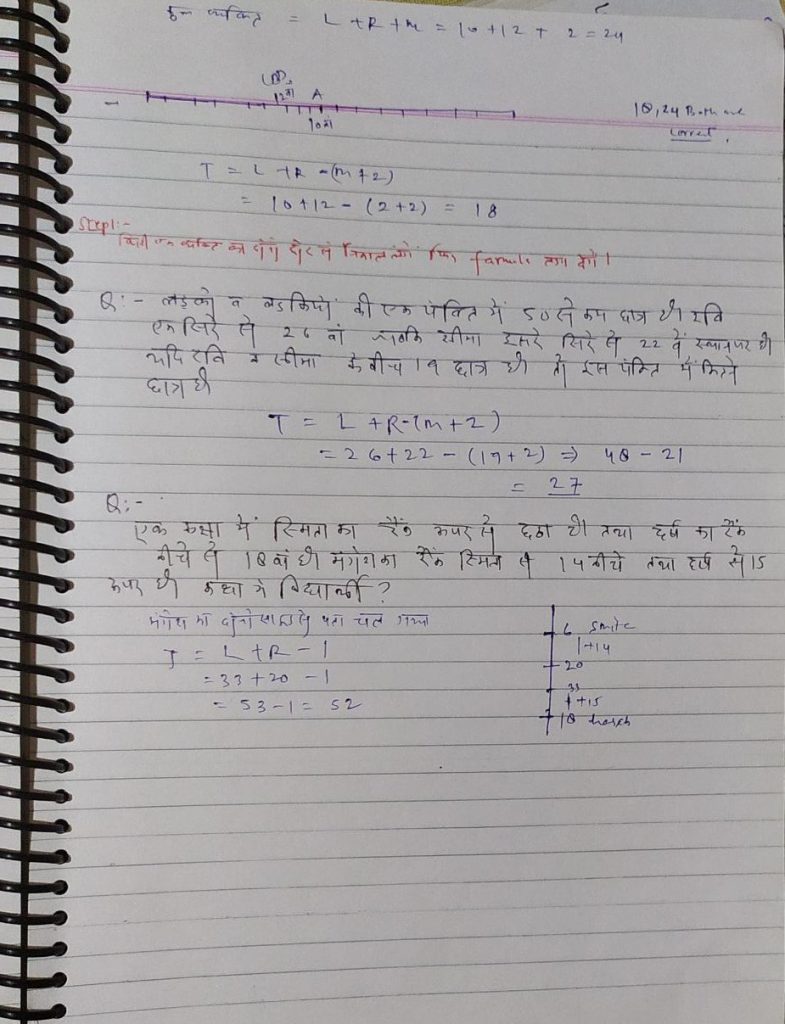 व्यक्ति = L + R + m = 10 + 12 + 2 = 24
12वां A
10वां
18, 24 Both are
correct.
T = L + R - (m + 2)
= 10 + 12 - (2 + 2) = 18
Step1:-
किसी एक व्यक्ति का दोनों से निकाल लेंगे फिर formula लगा देंगे।
Q:- लड़को व लड़कियों की एक पंक्ति में 50 से कम छात्र है। रवि
एक सिरे से 26 वां जबकि सीमा दूसरे सिरे से 22 वें स्थान पर है।
यदि रवि व सीमा के बीच 19 छात्र है। तो इस पंक्ति में कितने
छात्र है।
T = L + R - (m + 2)
= 26 + 22 - (19 + 2) ⇒ 48 - 21
= 27
Q:-
एक कक्षा में स्मिता का रैंक ऊपर से छठा है। तथा हर्ष का रैंक
नीचे से 18 वां है। मंगेश का रैंक स्मिता से 14 नीचे तथा हर्ष से 15
ऊपर है। कक्षा में विद्यार्थी ?
मंगेश का दोनो साइड से पता चल गया
T = L + R - 1
= 33 + 20 - 1
= 53 - 1 = 52
6 Smita
1 + 14
20
33
1 + 15
18 harsh